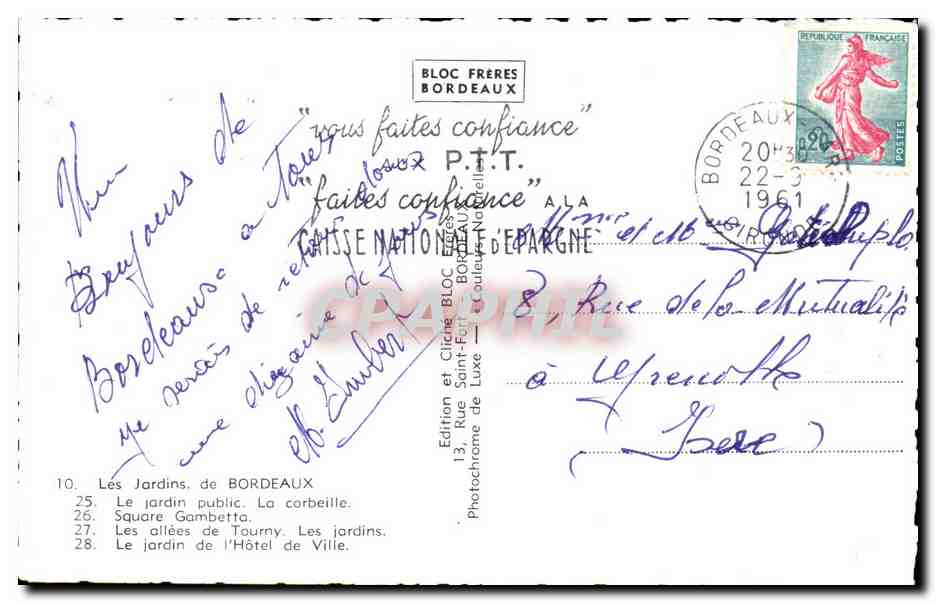 BLOC FRÈRES
BORDEAUX
REPUBLIQUE FRANÇAISE
0,20
POSTES
BORDEAUX
20H30
22-9
1961
GIRONDE
"vous faites confiance"
aux P.T.T.
"faites confiance" A LA
CAISSE NATIONALE D'EPARGNE
Un
Bonjour de
Bordeaux a Tous
je serais de retour dans
une dizaine de jours
Mme et Mr
8, Rue de la Mutualité
à Grenoble
(Isere)
Edition et Cliché BLOC Frères
13, Rue Saint-Fort - BORDEAUX
Photochrome de Luxe — Couleurs Naturelles
CPAPHIL
10. Les Jardins, de BORDEAUX
25. Le jardin public. La corbeille.
26. Square Gambetta.
27. Les allées de Tourny. Les jardins.
28. Le jardin de l'Hôtel de Ville.